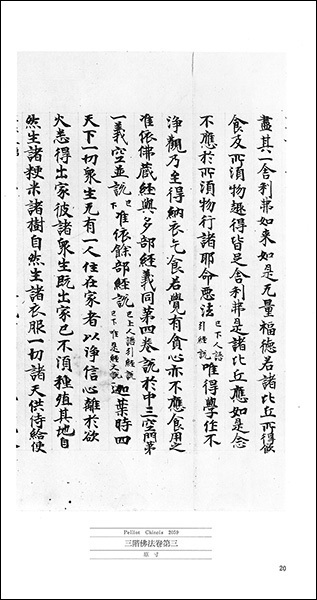 盡其一舍利弗如来如是无量福德若諸比丘所得飲
食及所湏物趣得皆足舍利弗是諸比丘應如是念
不應於所湏物行諸耶命惡法 已上人語引経説 唯得學住不
淨觀乃至得納衣乞食若覺有食心亦不應食用之
准依佛蔵経與多部経義同第四卷説於中三空門第
一義空並説 已上人語引経説已下 唯依餘部経説 已下唯是経文説 迦葉時四
天下一切衆生无有一人住在家者以净信心離於欲
火悉得出家彼諸衆生既出家已不湏種殖其地自
然生諸粳米諸樹自然生諸衣服一切諸天供侍給使
Pelliot Chinois 2059
三階佛法卷第三
原寸
20